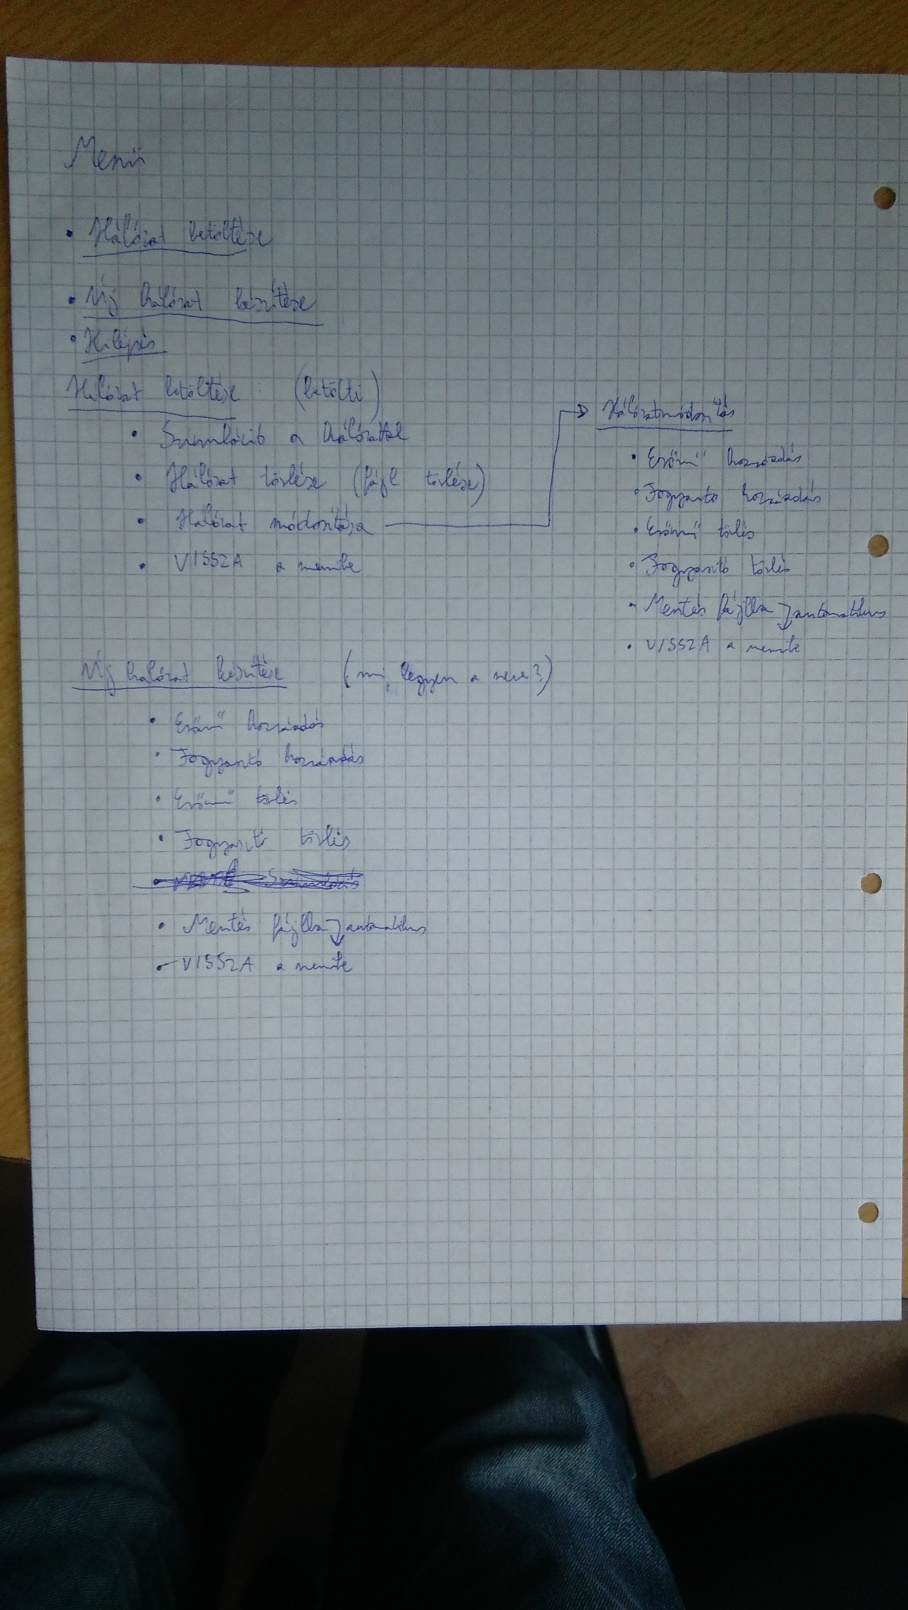 Menü
• Hálózat betöltése
• Új hálózat készítése
• Kilépés
Hálózat betöltése: (betölti)
• Szimuláció a hálózattal
• Hálózat törlése (fájl törlése)
• Hálózat módosítása
• VISSZA a menübe
Hálózatmódosítás
• Erőmű hozzáadás
• Fogyasztó hozzáadás
• Erőmű törlés
• Fogyasztó törlés
• Mentés fájlba automatikus
• VISSZA a menübe
Új hálózat készítése (mi legyen a neve?)
• Erőmű hozzáadás
• Fogyasztó hozzáadás
• Erőmű törlés
• Fogyasztó törlés
• Mentés fájlba automatikus
• VISSZA a menübe